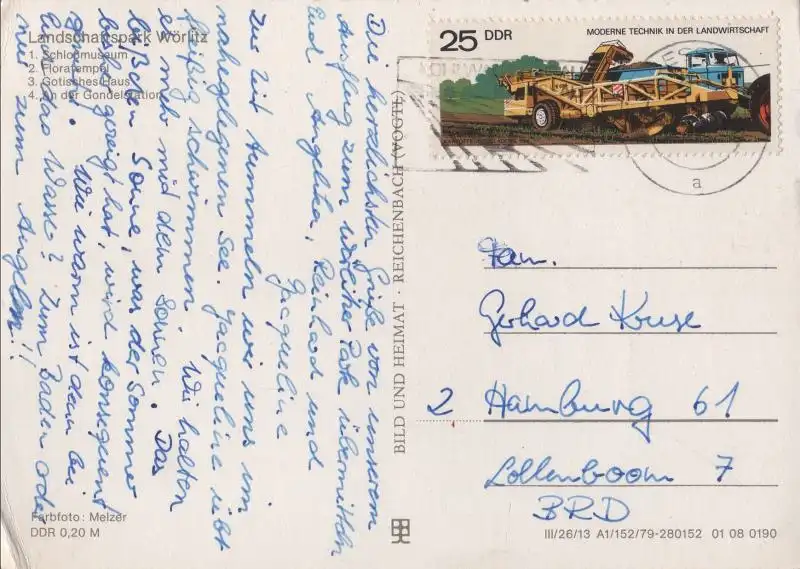 Landschaftspark Wörlitz
1. Schloßmuseum
2. Floratempel
3. Gotisches Haus
4. An der Gondelstation
Die herzlichsten Grüße von unserem
Ausflug zum Wörlitzer Park übermitteln
Euch Angelika, Reinhard und
Jacqueline
Zur Zeit tummeln wir uns im
nahegelegenen See. Jacqueline ist
fleißig schwimmen. Wir halten
es mehr mit dem Sonnen. Das
bißchen Sonne, was der Sommer
bisher gezeigt hat, wird konsequent
genutzt. Wie warm ist denn bei
Euch das Wasser? Zum Baden oder
nur zum Angeln!!
Farbfoto: Melzer
DDR 0,20 M
BILD UND HEIMAT · REICHENBACH (VOGTL)
25 DDR
MODERNE TECHNIK IN DER LANDWIRTSCHAFT
a
Fam.
Gerhard Kruse
2 Hamburg 61
Lollenboom 7
BRD
III/26/13 A1/152/79-280152 01 08 0190